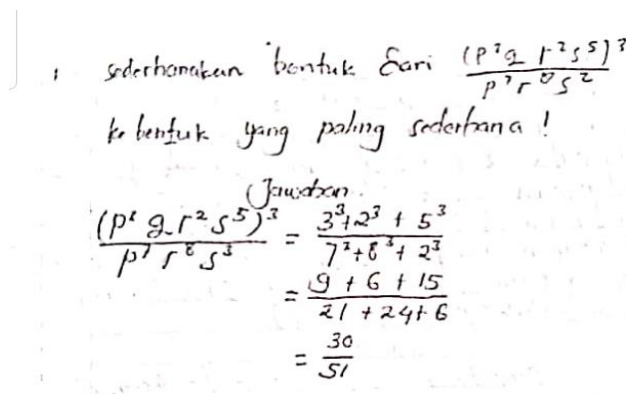 1 sederhanakan bentuk dari (p³q r²s⁵)³ / p⁷r⁸s²
ke bentuk yang paling sederhana !
Jawaban
(p³ q r² s⁵)³ / p⁷ r⁸ s³ = 3³+2³ + 5³ / 7³+8³+ 2³
= 9 + 6 + 15 / 21 + 24 + 6
= 30 / 51